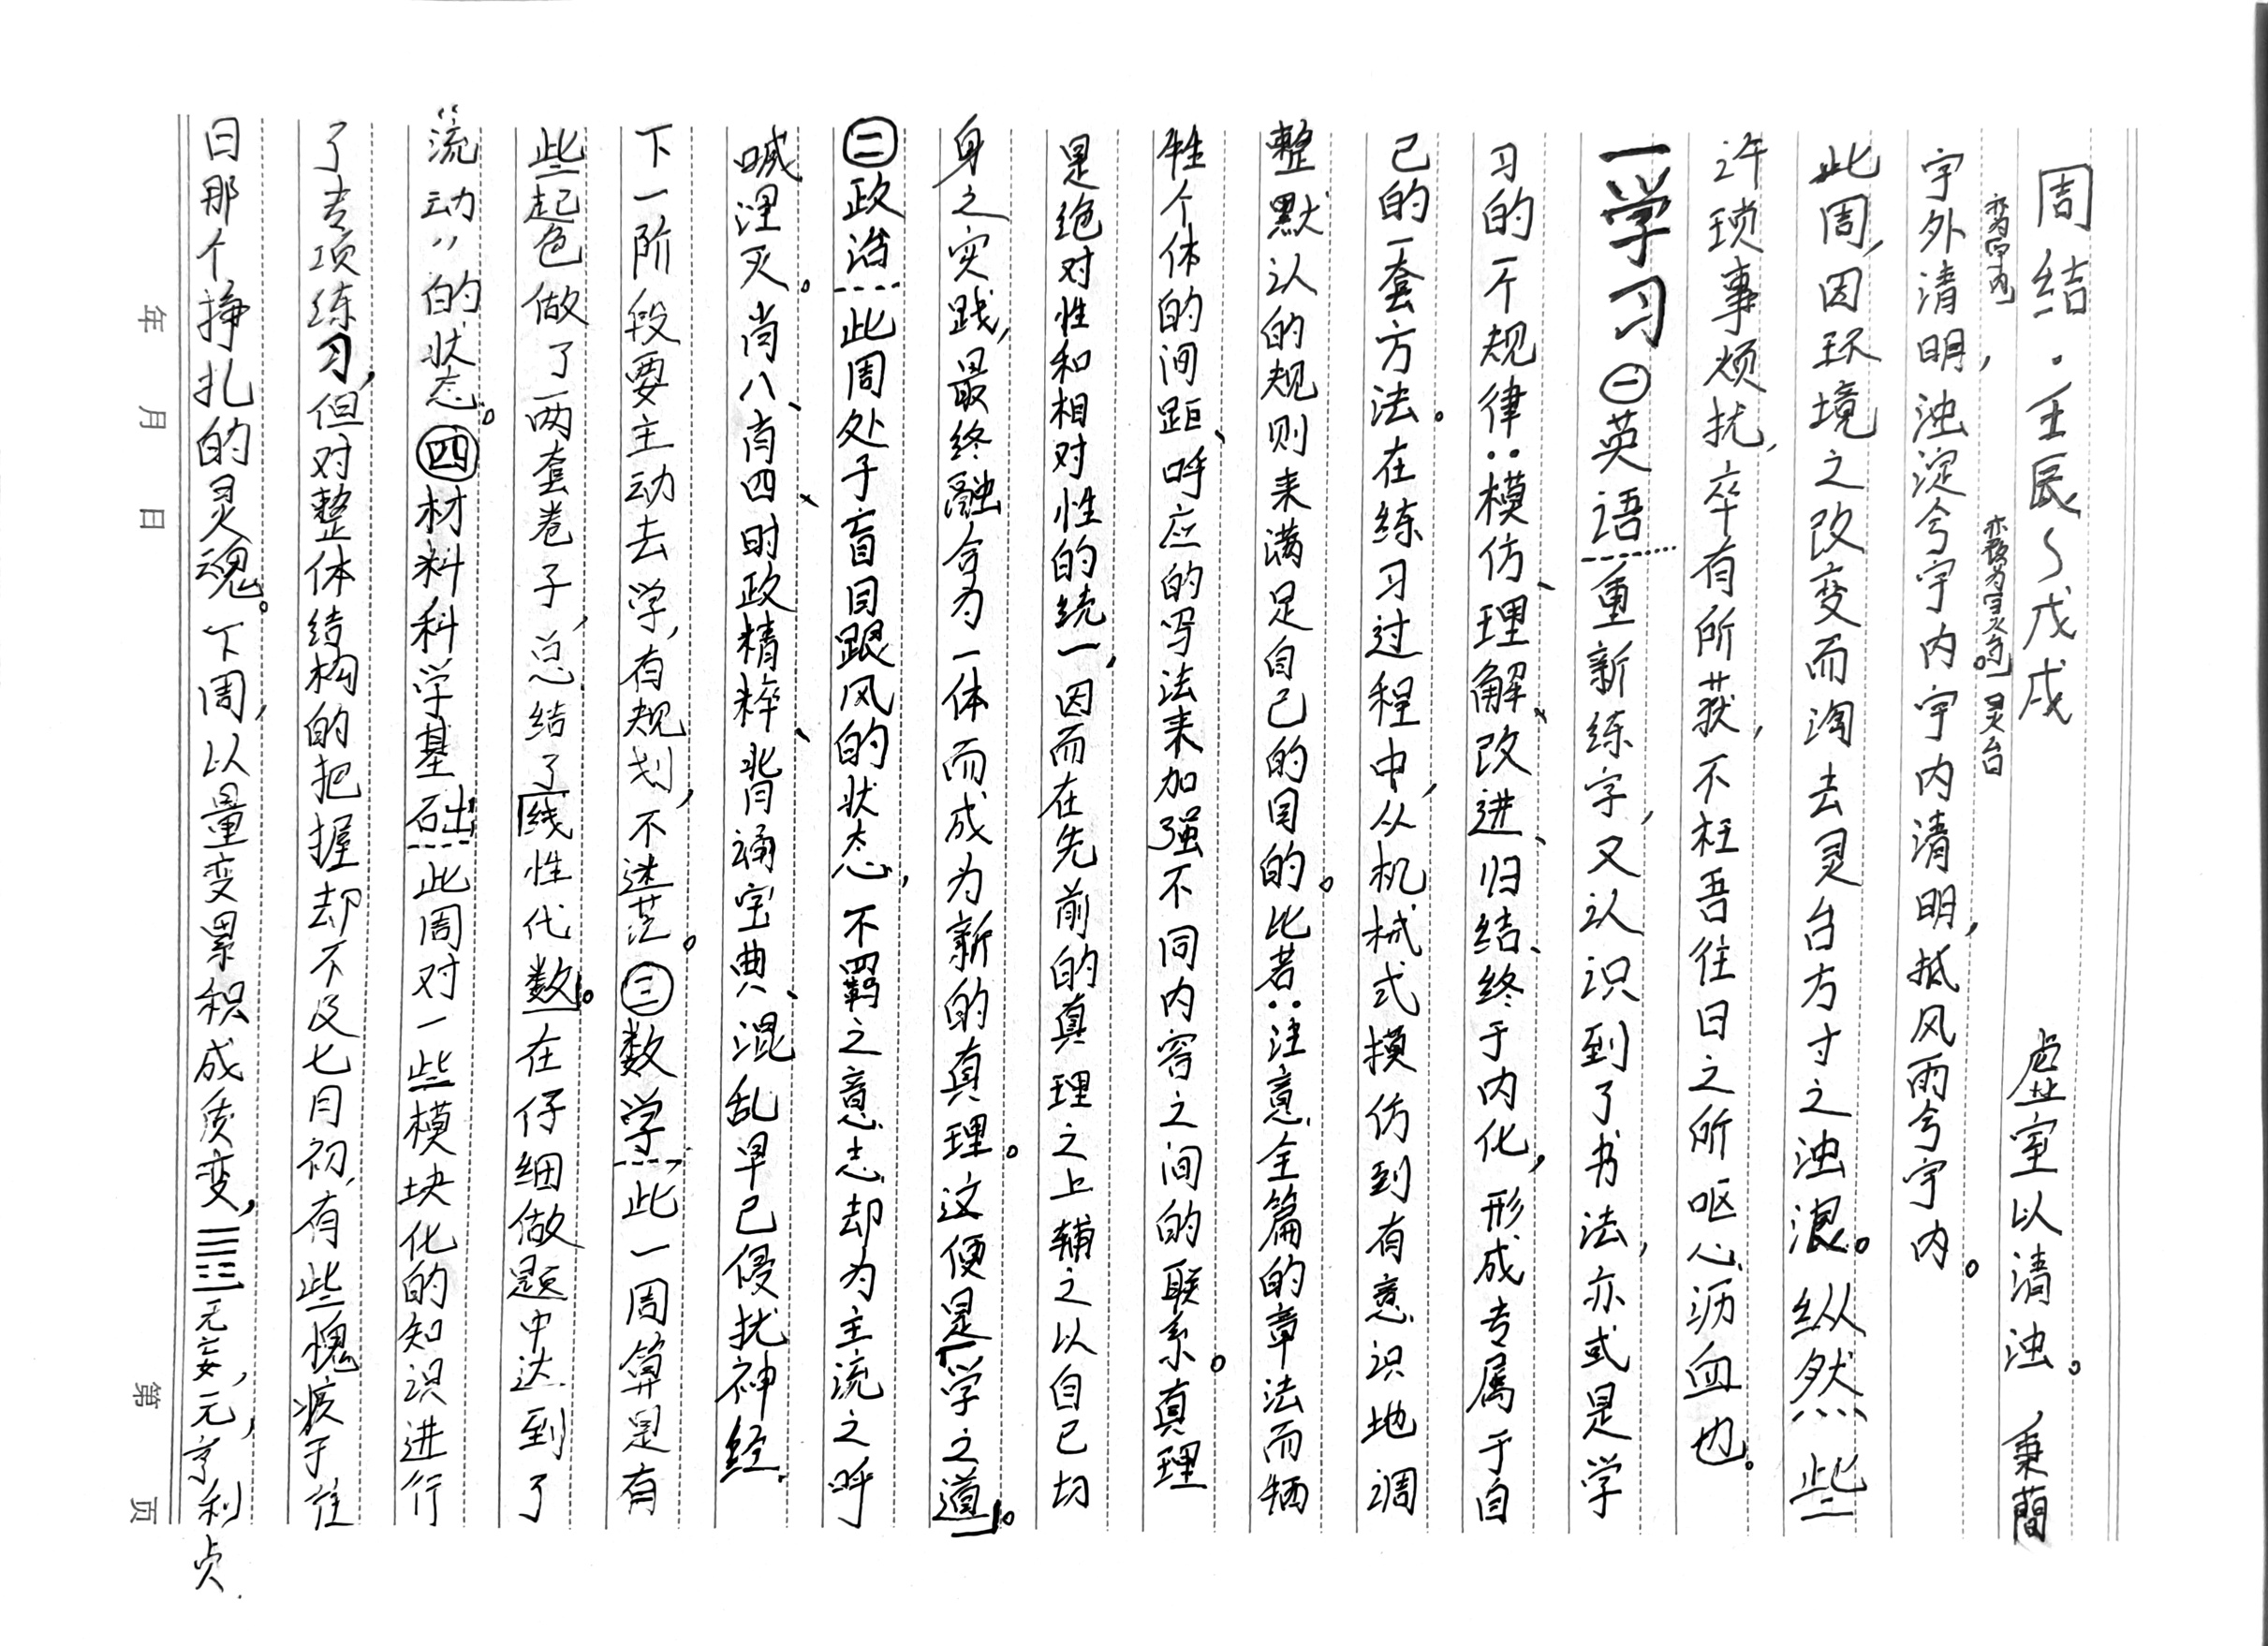 周结·壬辰~戊戌 虚室以清浊。秉蕳
宇外清明,浊淀兮宇内宇内清明,抵风雨兮宇内。
此周,因环境之改变而淘去灵台方寸之浊浪。纵然些
许琐事烦扰,卒有所获,不枉吾往日之所呕心沥血也。
一学习㊀英语 重新练字,又认识到了书法,亦或是学
习的一个规律:模仿、理解、改进、归结、终于内化,形成专属于自
己的一套方法。在练习过程中,从机械式摸仿到有意识地调
整默认的规则来满足自己的目的。比若:注意全篇的章法而牺
牲个体的间距、呼应的写法来加强不同内容之间的联系。真理
是绝对性和相对性的统一,因而在先前的真理之上辅之以自己切
身之实践,最终融合为一体而成为新的真理。这便是「学之道」。
㊁政治 此周处于盲目跟风的状态,不羁之意志却为主流之呼
喊湮灭。肖八、肖四、时政精粹、背诵宝典、混乱早已侵扰神经.
下一阶段要主动去学,有规划,不迷茫。㊂数学 此一周算是有
些起色做了两套卷子,总结了「线性代数」。在仔细做题中达到了
“流动”的状态。㊃材料科学基础 此周对一些模块化的知识进行
了专项练习,但对整体结构的把握却不及七月初,有些愧疚于往
日那个挣扎的灵魂。下周,以量变累积成质变,无妄,元,亨利贞.
年 月 日 第 页